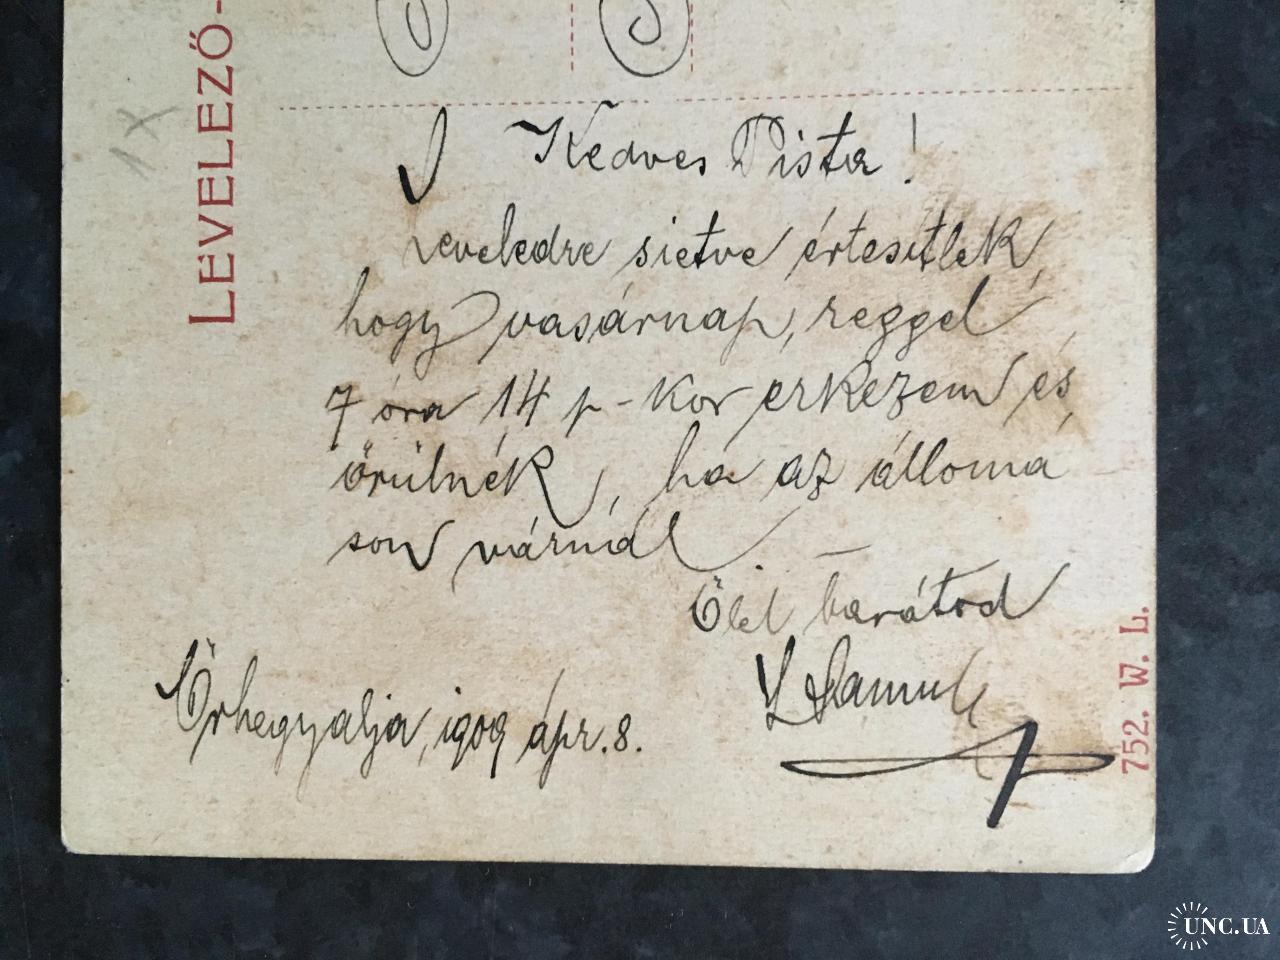 LEVELEZŐ-
1X
Kedves Pista!
Leveledre sietve értesítlek,
hogy vasárnap, reggel
7 óra 14 p-kor érkezem és
örülnék, ha az álloma
son várnál
Ölel barátod
Őrhegyalja, 1909 ápr. 8.
752. W. L.
UNC.UA